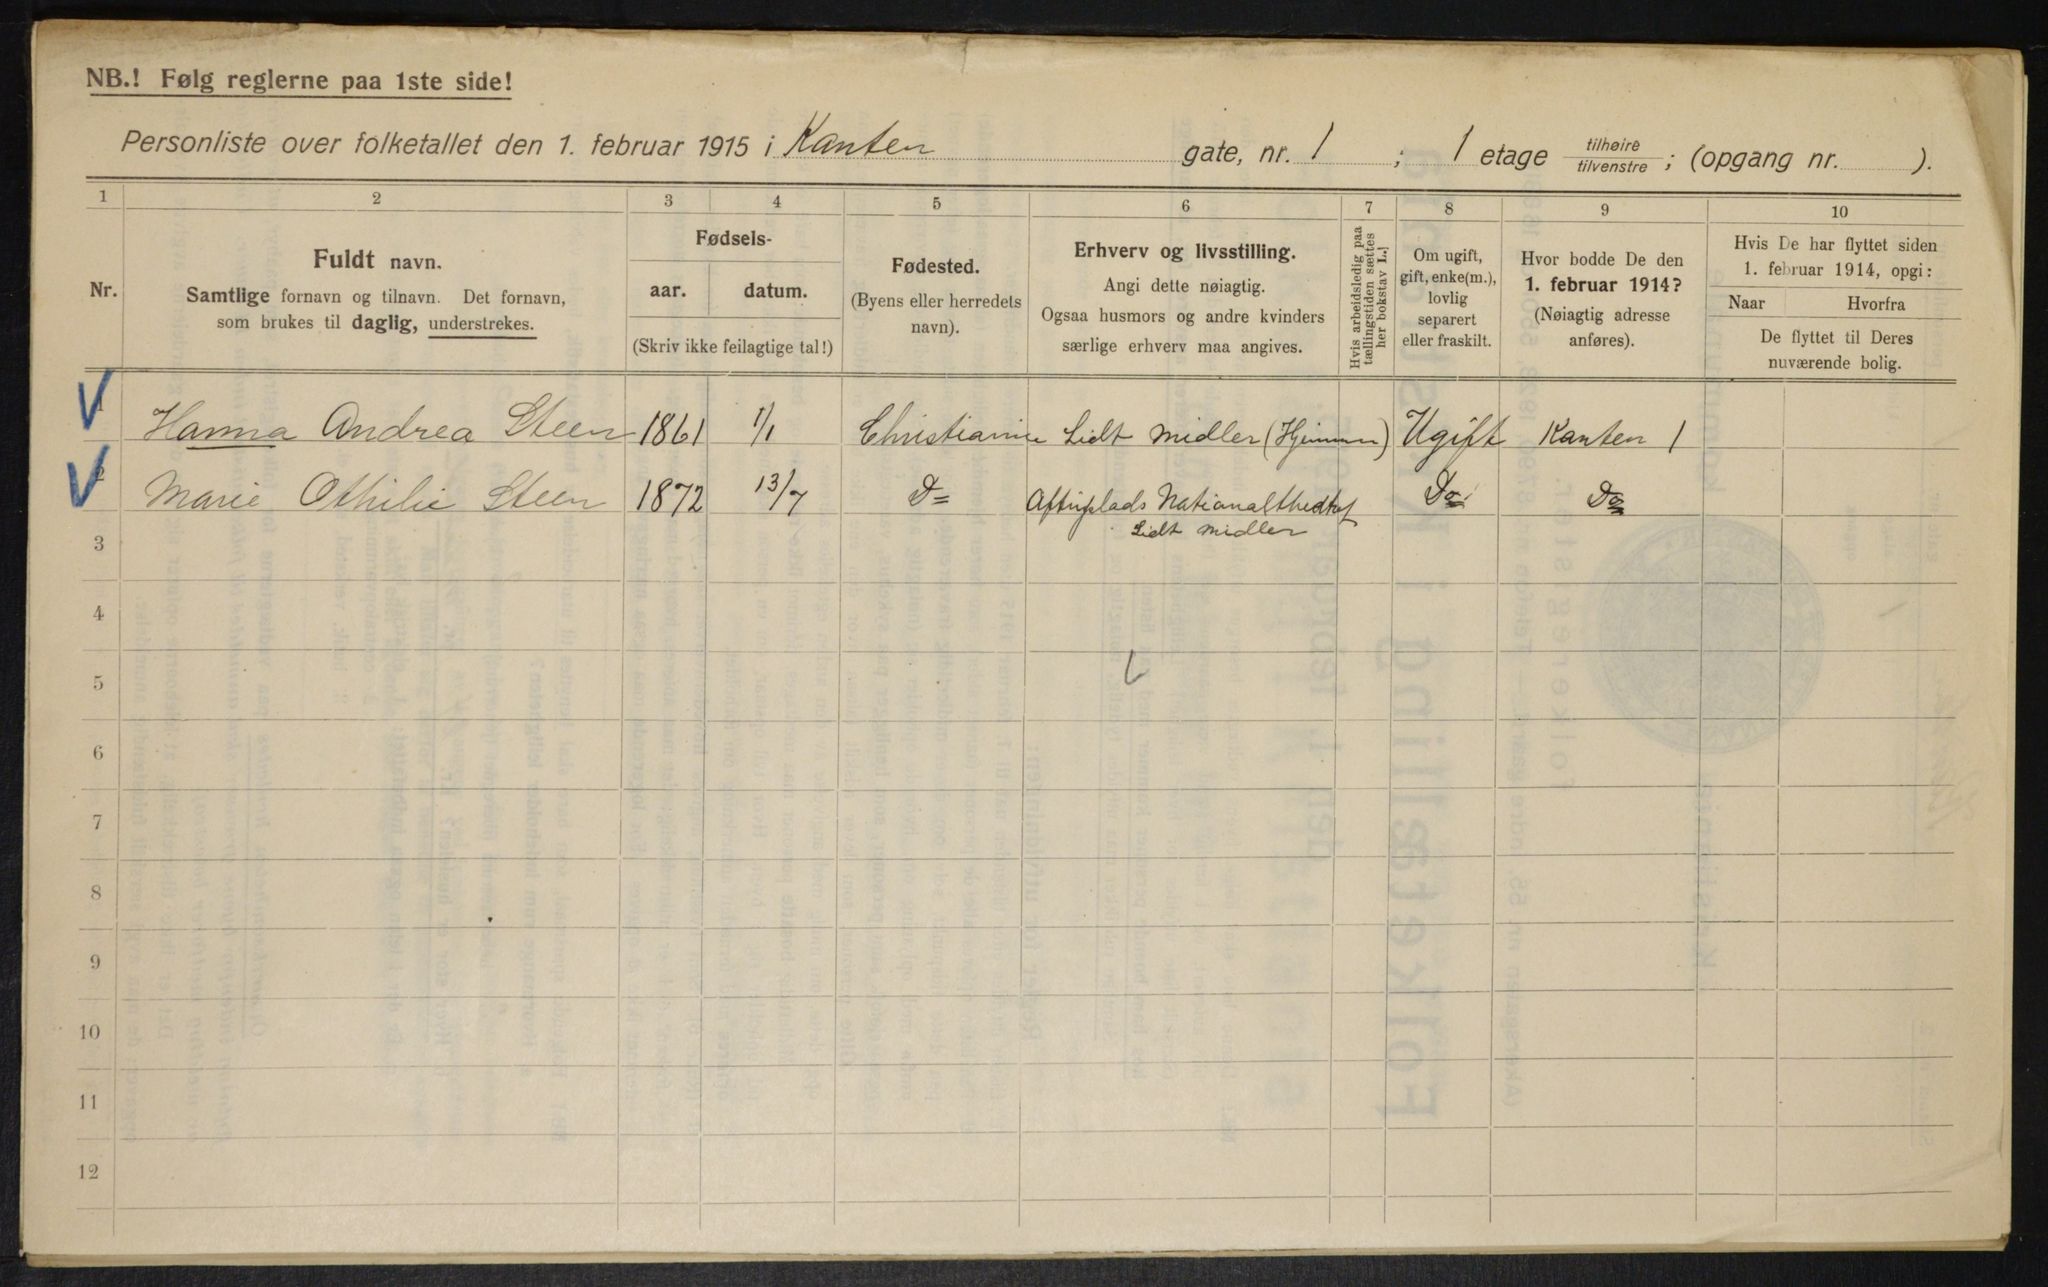 NB.! Følg reglerne paa 1ste side!
Personliste over folketallet den 1. februar 1915 i Kanten gate, nr. 1 ; 1 etage tilhøire tilvenstre ; (opgang nr. ).
1 2 3 4 5 6 7 8 9 10
Nr.
Fuldt navn.
Samtlige fornavn og tilnavn. Det fornavn,
som brukes til daglig, understrekes.
Fødsels-
aar. datum.
(Skriv ikke feilagtige tal!)
Fødested.
(Byens eller herredets
navn).
Erhverv og livsstilling.
Angi dette nøiagtig.
Ogsaa husmors og andre kvinders
særlige erhverv maa angives.
Hvis arbeidsledig paa
tællingstiden sættes
her bokstav L.
Om ugift,
gift, enke(m.),
lovlig
separert
eller fraskilt.
Hvor bodde De den
1. februar 1914?
(Nøiagtig adresse
anføres).
Hvis De har flyttet siden
1. februar 1914, opgi:
Naar Hvorfra
De flyttet til Deres
nuværende bolig.
1 Hanna Andrea Steen 1861 1/1 Christiania Lidt midler (Hjemmen) Ugift Kanten 1
2 Marie Othilie Steen 1872 13/7 Do Nationaltheatret Do Do
Lidt midler
3
4
5
6
7
8
9
10
11
12